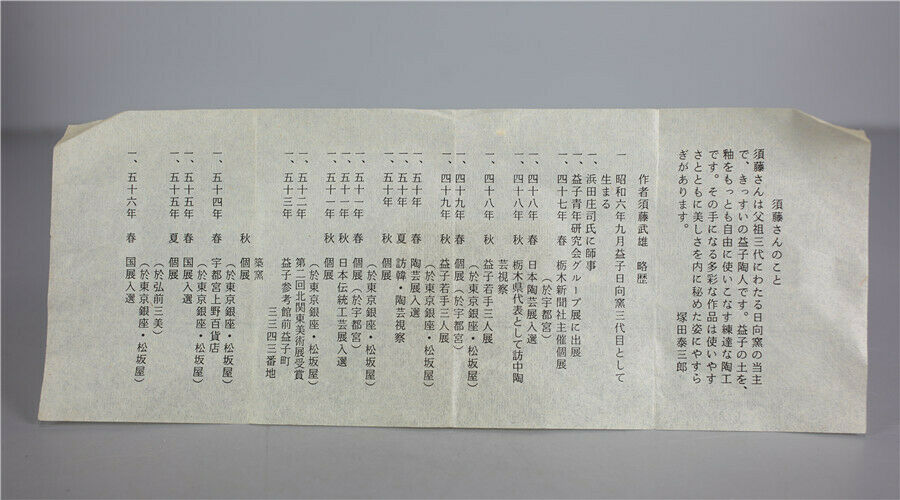 須藤さんのこと
須藤さんは父祖三代にわたる日向窯の当主
で、きっすいの益子陶人です。益子の土を、
釉をもっとも自由に使いこなす練達な陶工
です。その手になる多彩な作品は使いやす
さとともに美しさを内に秘めた姿にやすら
ぎがあります。
塚田泰三郎
作者須藤武雄 略歴
一 昭和六年九月益子日向窯三代目として
生まる
一、浜田庄司氏に師事
一、益子青年研究会グループ展に出展
一、四十七年 春 栃木新聞社主催個展
(於宇都宮)
一、四十八年 春 日本陶芸展入選
一、四十八年 秋 栃木県代表として訪中陶
芸視察
一、四十八年 秋 益子若手三人展
(於東京銀座・松坂屋)
一、四十九年 春 個展(於宇都宮)
一、四十九年 秋 益子若手三人展
(於東京銀座・松坂屋)
一、五十年 春 陶芸展入選
一、五十年 夏 訪韓・陶芸視察
一、五十年 秋 個展
(於東京銀座・松坂屋)
一、五十一年 春 個展(於宇都宮)
一、五十一年 秋 日本伝統工芸展入選
一、五十一年 秋 個展
(於東京銀座・松坂屋)
一、五十二年 第二回北関東美術展受賞
一、五十三年 益子参考館前益子町
三三四三番地
築窯
秋 個展
(於東京銀座・松坂屋)
一、五十四年 春 宇都宮上野百貨店
一、五十五年 春 国展入選
一、五十五年 夏 個展
(於弘前三美)
秋 (於東京銀座・松坂屋)
一、五十六年 春 国展入選